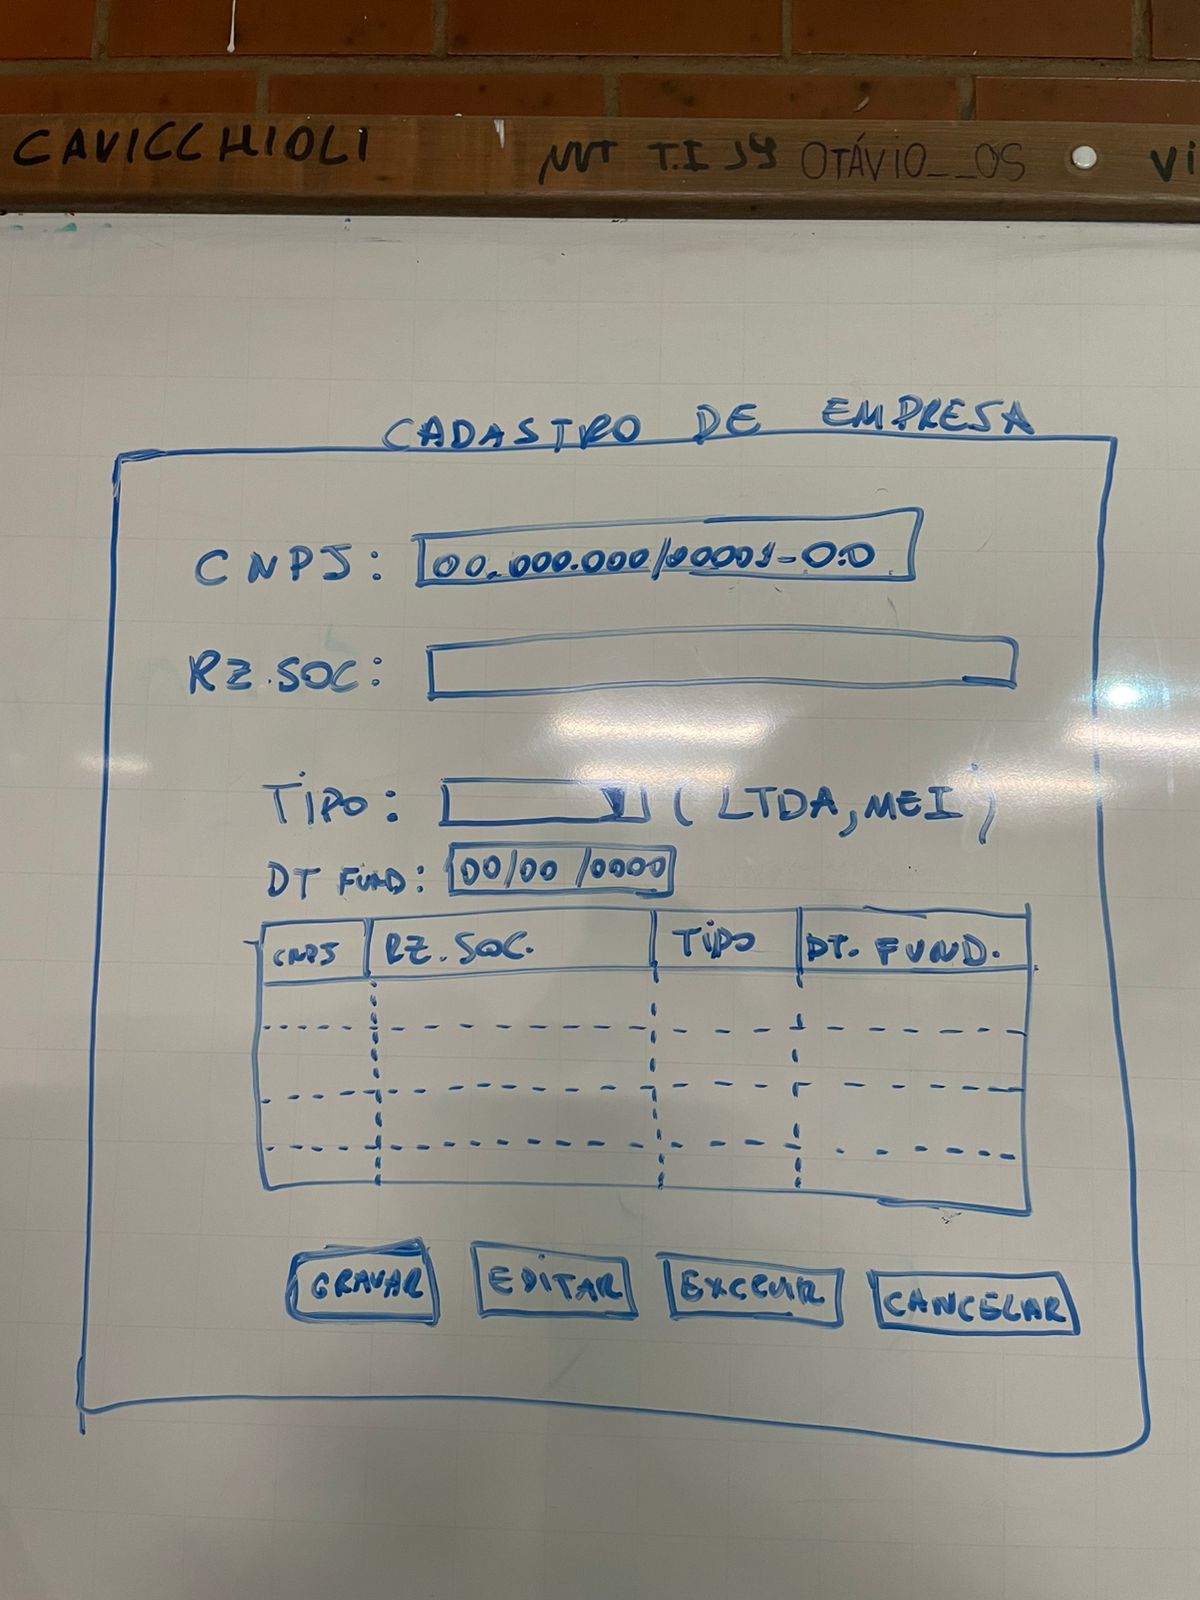 CAVICCHIOLI T.I OTÁVIO__OS Vi
CADASTRO DE EMPRESA
CNPJ: 00.000.000/00001-00
RZ.SOC:
TIPO: (LTDA, MEI)
DT FUND: 00/00/0000
CNPJ RZ. SOC. TIPO DT. FUND.
GRAVAR EDITAR EXCLUIR CANCELAR